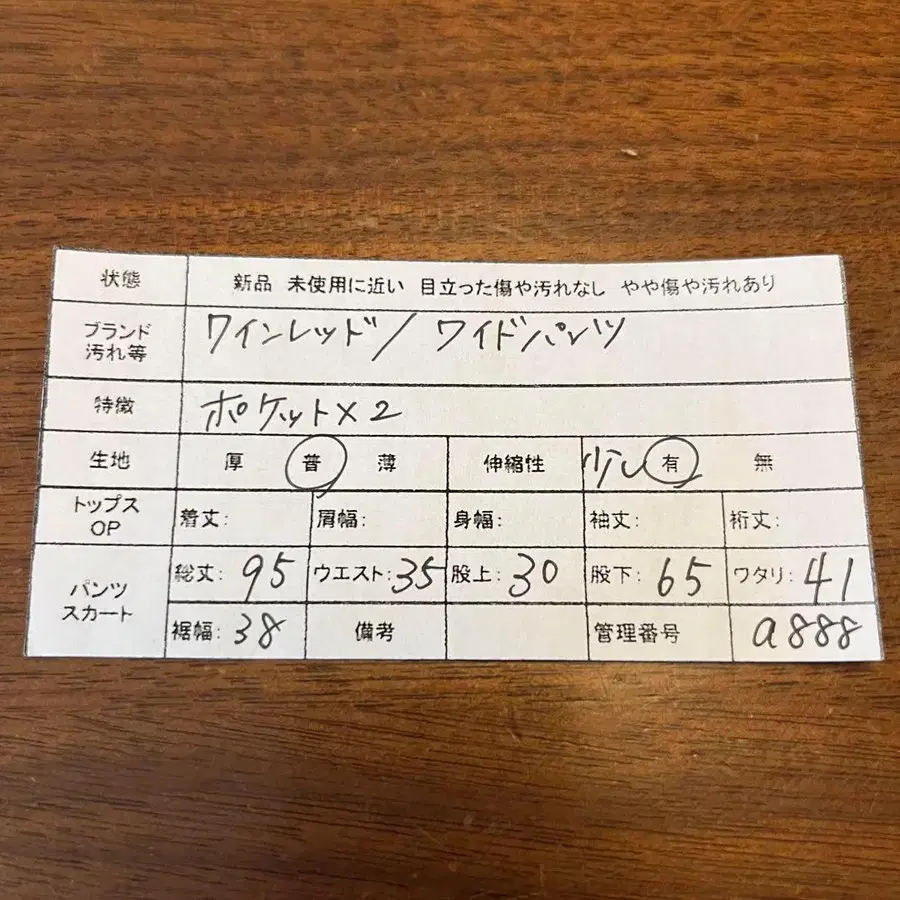 状態 新品 未使用に近い 目立った傷や汚れなし やや傷や汚れあり
ブランド 汚れ等 ワインレッド/ ワイドパンツ
特徴 ポケット×2
生地 厚 普 薄 伸縮性 少し 有 無
トップス OP 着丈: 肩幅: 身幅: 袖丈: 裄丈:
パンツ スカート 総丈: 95 ウエスト: 35 股上: 30 股下: 65 ワタリ: 41
裾幅: 38 備考 管理番号 a888